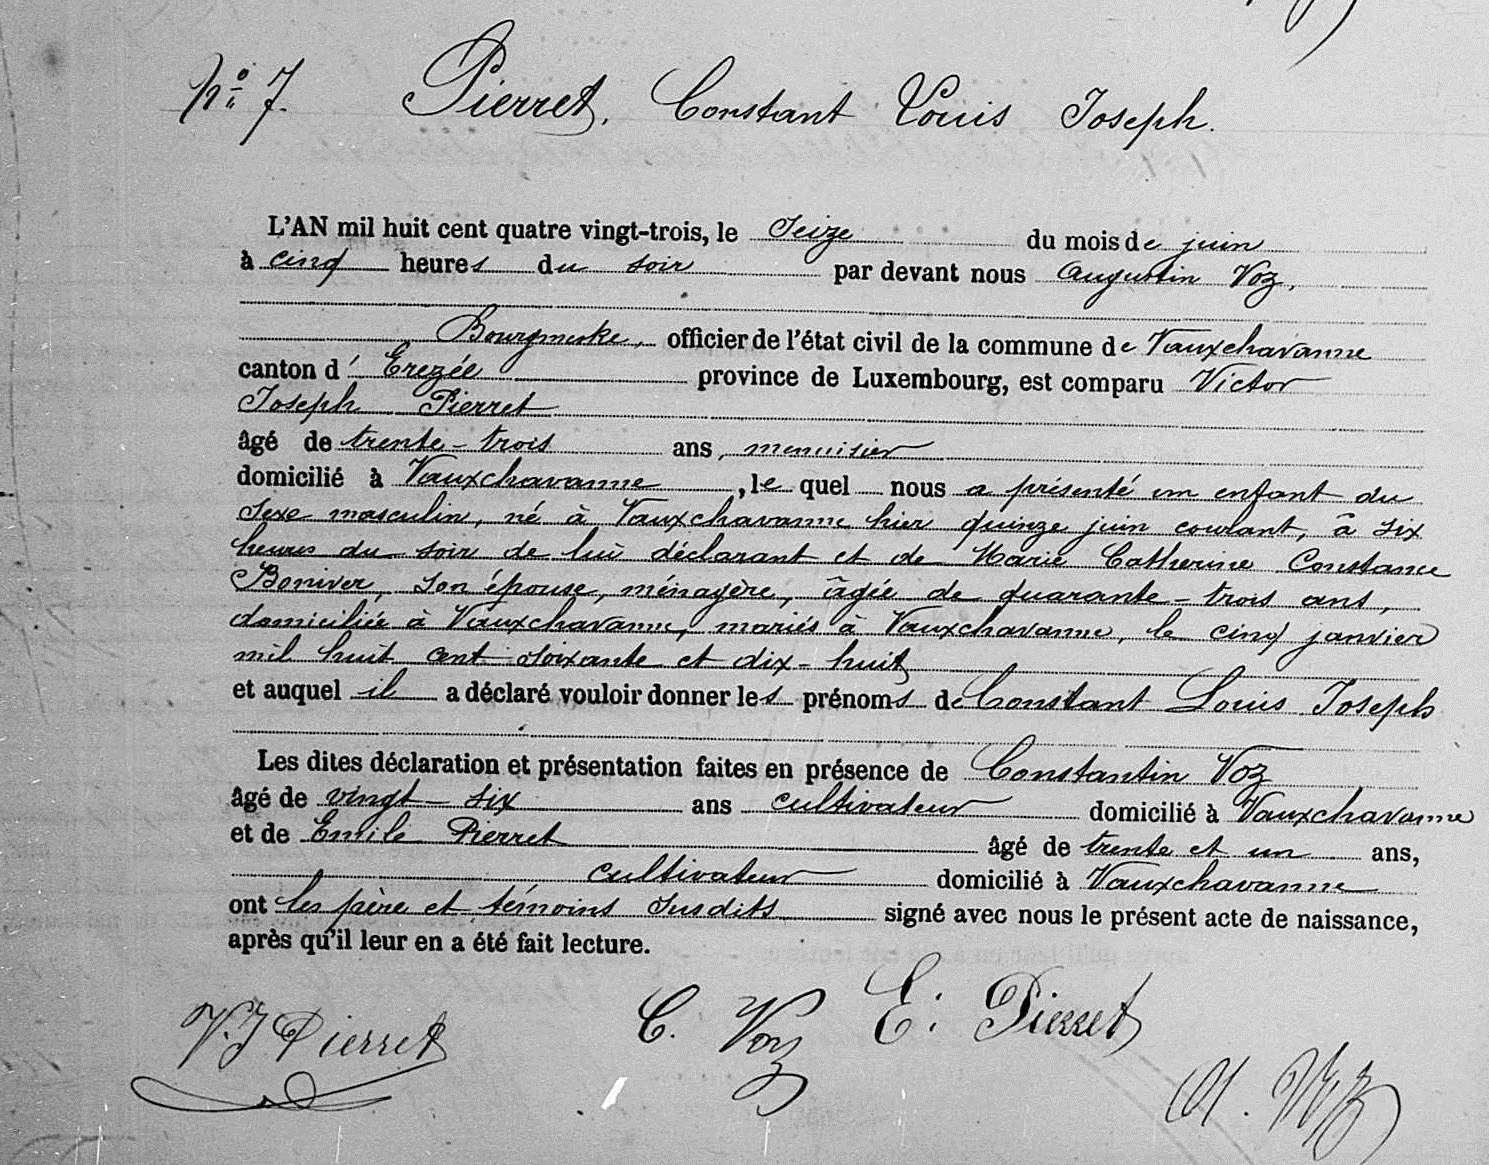 No 7. Pierret, Constant Louis Joseph.
L'AN mil huit cent quatre vingt-trois, le Seize du mois de juin
à cinq heures du soir par devant nous Augustin Voz,
Bourgmestre, officier de l'état civil de la commune de Vauxchavanne
canton d'Erezée province de Luxembourg, est comparu Victor
Joseph Pierret
âgé de trente-trois ans, menuisier
domicilié à Vauxchavanne, le quel nous a présenté un enfant du
sexe masculin, né à Vauxchavanne hier quinze juin courant, à six
heures du soir de lui déclarant et de Marie Catherine Constance
Boniver, son épouse, ménagère, âgée de quarante-trois ans,
domiciliée à Vauxchavanne, mariés à Vauxchavanne, le cinq janvier
mil huit cent soixante et dix-huit
et auquel il a déclaré vouloir donner les prénoms de Constant Louis Joseph
Les dites déclaration et présentation faites en présence de Constantin Voz
âgé de vingt-six ans cultivateur domicilié à Vauxchavanne
et de Emile Pierret âgé de trente et un ans,
cultivateur domicilié à Vauxchavanne
ont les père et témoins susdits signé avec nous le présent acte de naissance,
après qu'il leur en a été fait lecture.
V.J Pierret C. Voz E. Pierret
A. Voz